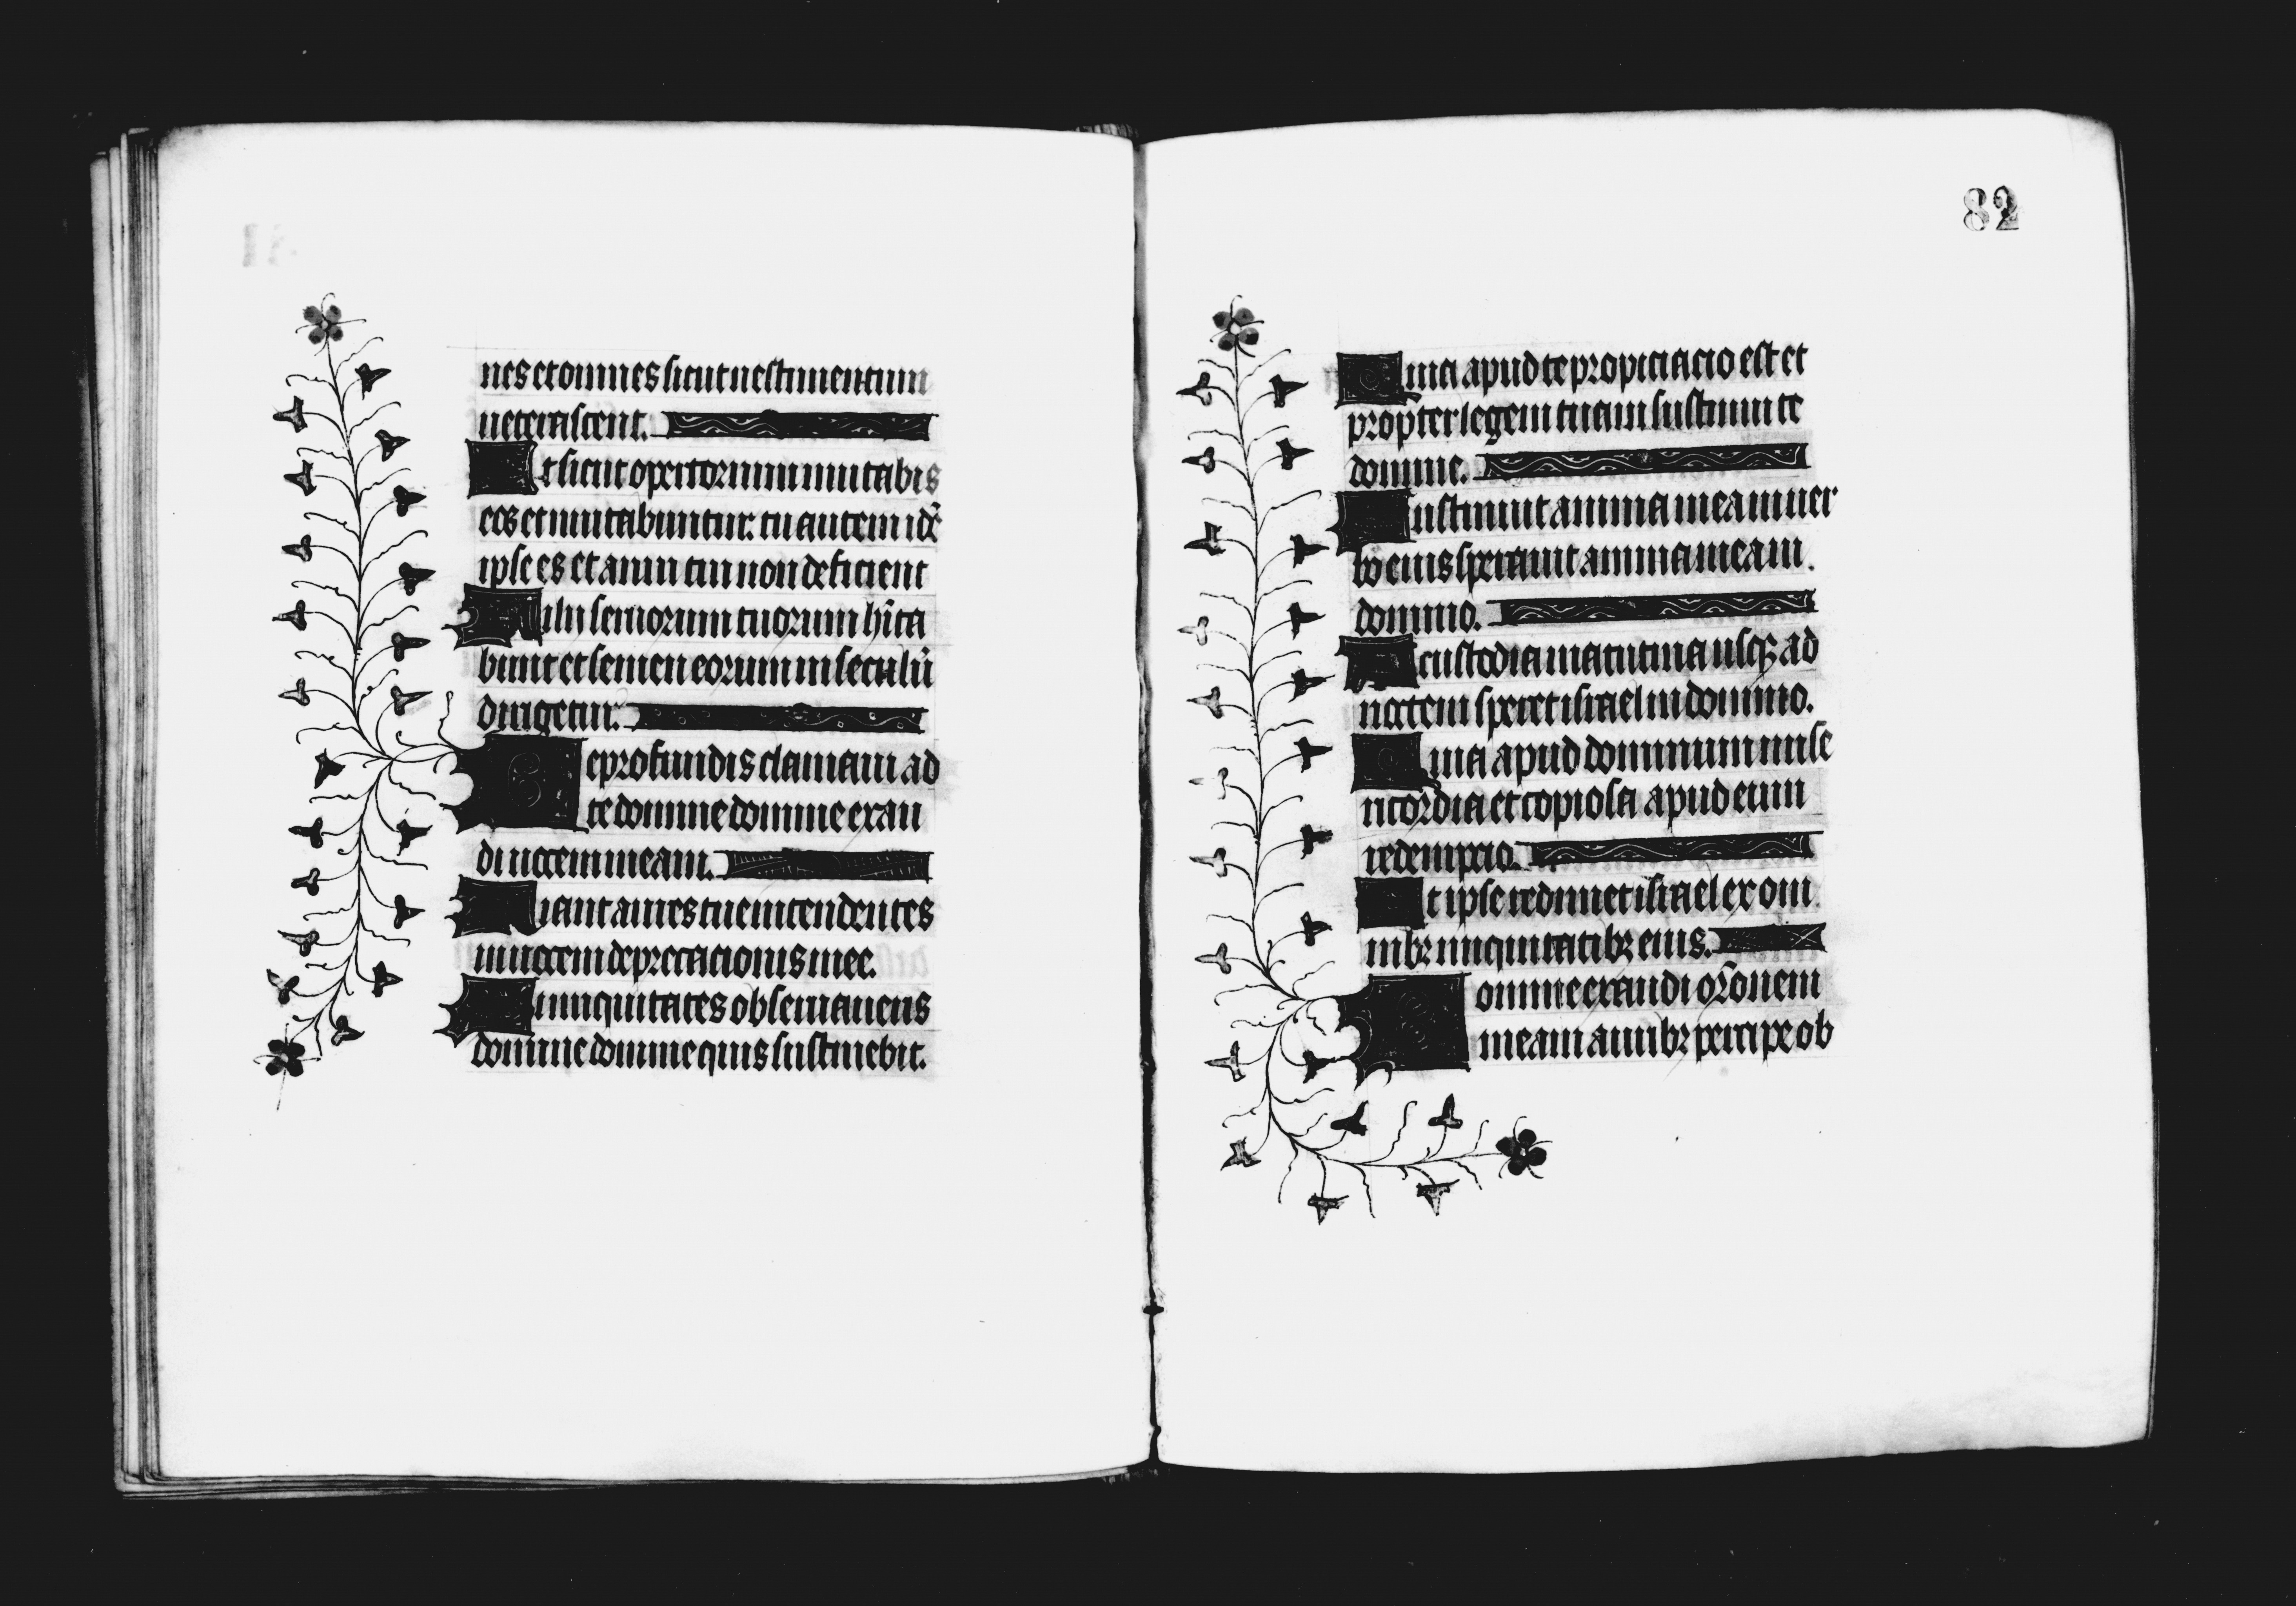 nes et omnes sicut uestimentum
ueterascent.
Et sicut opertorium mutabis
eos et mutabuntur. tu autem idẽ
ipse es et anni tui non deficient
Filii seruorum tuorum hĩta
bunt et semen eorum in seculũ
dirigetur.
De profundis clamaui ad
te domine domine exau
di uocem meam.
Fiant aures tue intendentes
in uocem deprecacionis mee.
Si iniquitates obseruaueris
domine domine quis sustinebit.
82
Quia apud te propiciacio est et
propter legem tuam sustinui te
domine.
Sustinuit anima mea in uer
bo eius sperauit anima mea in
domino.
A custodia matutina usqꝫ ad
noctem speret israel in domino.
Quia apud dominum mise
ricordia et copiosa apud eum
redempcio.
Et ipse redimet israel ex om
nibꝫ iniquitatibꝫ eius.
Domine exaudi orõnem
meam auribꝫ percipe ob